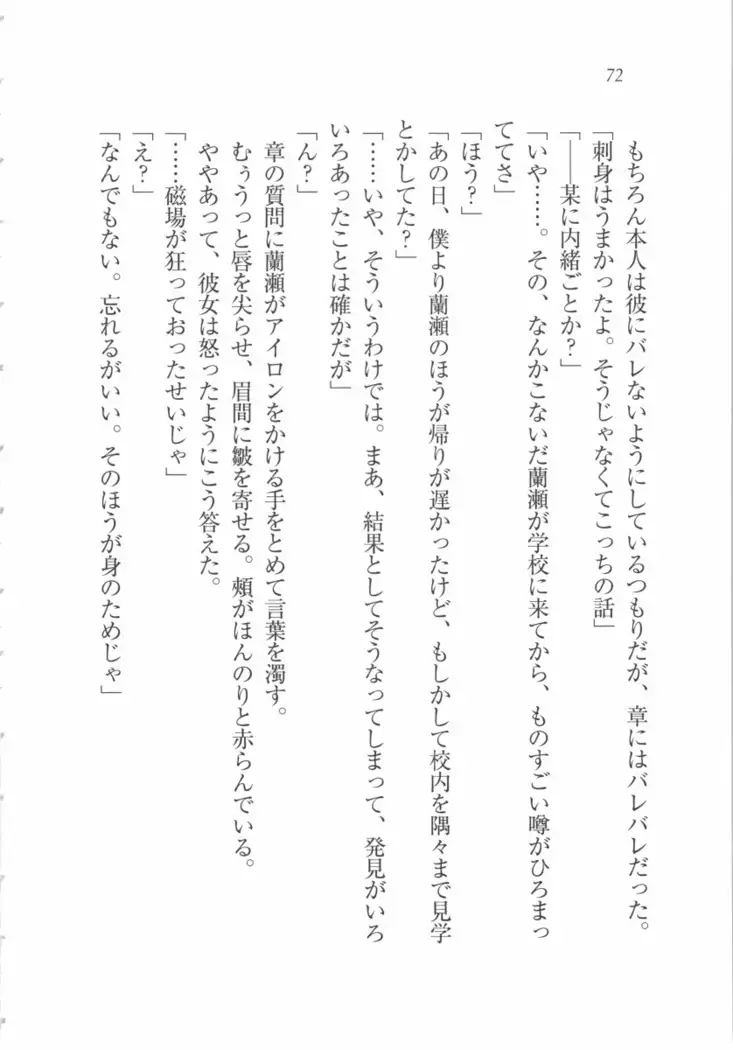 72
もちろん本人は彼にバレないようにしているつもりだが、章にはバレバレだった。
「刺身はうまかったよ。そうじゃなくてこっちの話」
「――某に内緒ごとか?」
「いや……。その、なんかこないだ蘭瀬が学校に来てから、ものすごい噂がひろまっ
ててさ」
「ほう?」
「あの日、僕より蘭瀬のほうが帰りが遅かったけど、もしかして校内を隅々まで見学
とかしてた?」
「……いや、そういうわけでは。まあ、結果としてそうなってしまって、発見がいろ
いろあったことは確かだが」
「ん?」
章の質問に蘭瀬がアイロンをかける手をとめて言葉を濁す。
むぅうっと唇を尖らせ、眉間に皺を寄せる。頰がほんのりと赤らんでいる。
ややあって、彼女は怒ったようにこう答えた。
「……磁場が狂っておったせいじゃ」
「え?」
「なんでもない。忘れるがいい。そのほうが身のためじゃ」